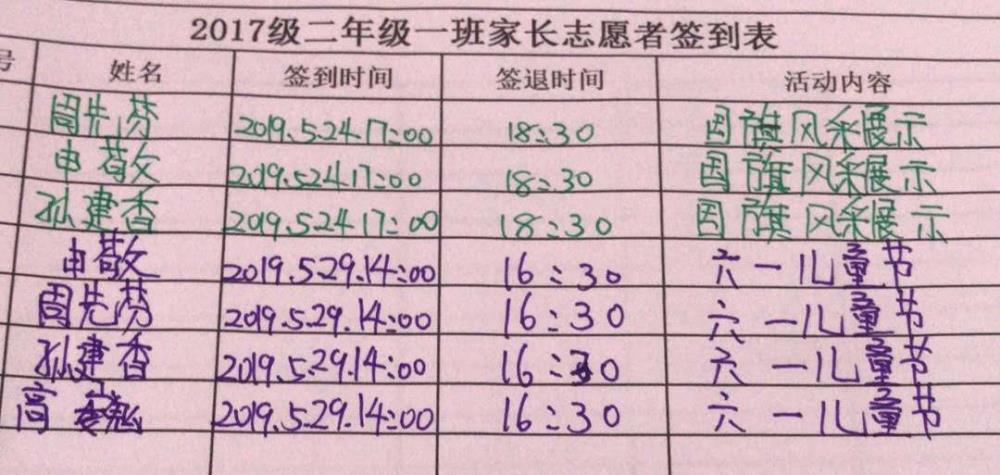 2017级二年级一班家长志愿者签到表
号 姓名 签到时间 签退时间 活动内容
周先芬 2019.5.24.17:00 18:30 国旗风采展示
申敬 2019.5.24.17:00 18:30 国旗风采展示
孙建香 2019.5.24.17:00 18:30 国旗风采展示
申敬 2019.5.29.14:00 16:30 六一儿童节
周先芬 2019.5.29.14:00 16:30 六一儿童节
孙建香 2019.5.29.14:00 16:30 六一儿童节
高 2019.5.29.14:00 16:30 六一儿童节